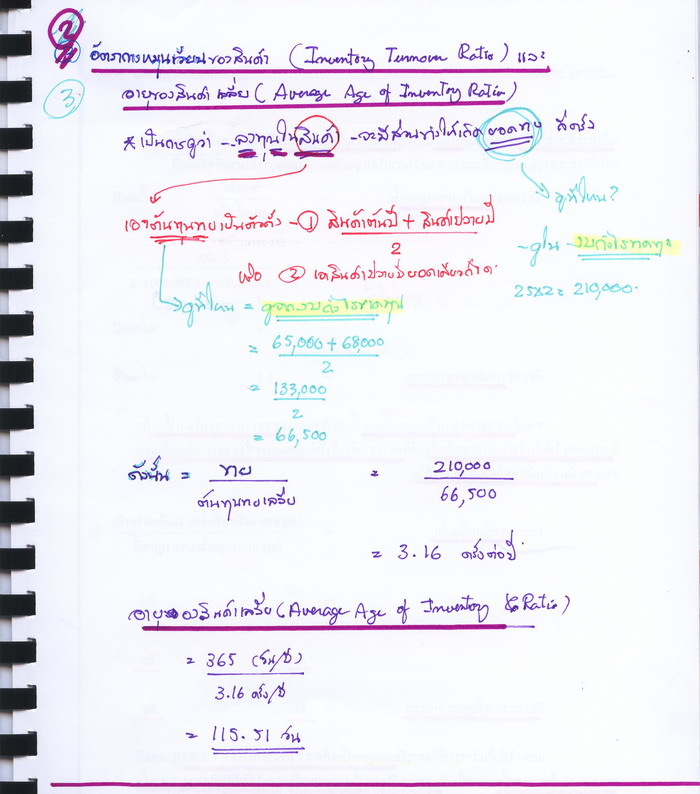 2
3
อัตราการหมุนเวียนของสินค้า (Inventory Turnover Ratio) และ
อายุของสินค้าเฉลี่ย (Average Age of Inventory Ratio)
* เป็นการดูว่า - ลงทุนในสินค้า - จะมีส่วนทำให้เกิดยอดขาย กี่ครั้ง
ดูที่ไหน?
- ดูใน งบกำไรขาดทุน
= 210,000.
เอาต้นทุนขายเป็นตัวตั้ง - ① สินค้าต้นปี + สินค้าปลายปี
2
หรือ ②
ดูที่ไหน = ดูจากงบกำไรขาดทุน
= 65,000 + 68,000
2
= 133,000
2
= 66,500
ดังนั้น = ขาย = 210,000
ต้นทุนขายเฉลี่ย 66,500
= 3.16 ครั้งต่อปี
อายุของสินค้าเฉลี่ย (Average Age of Inventory Ratio)
= 365 (วัน/ปี)
3.16 ครั้ง/ปี
= 115.51 วัน